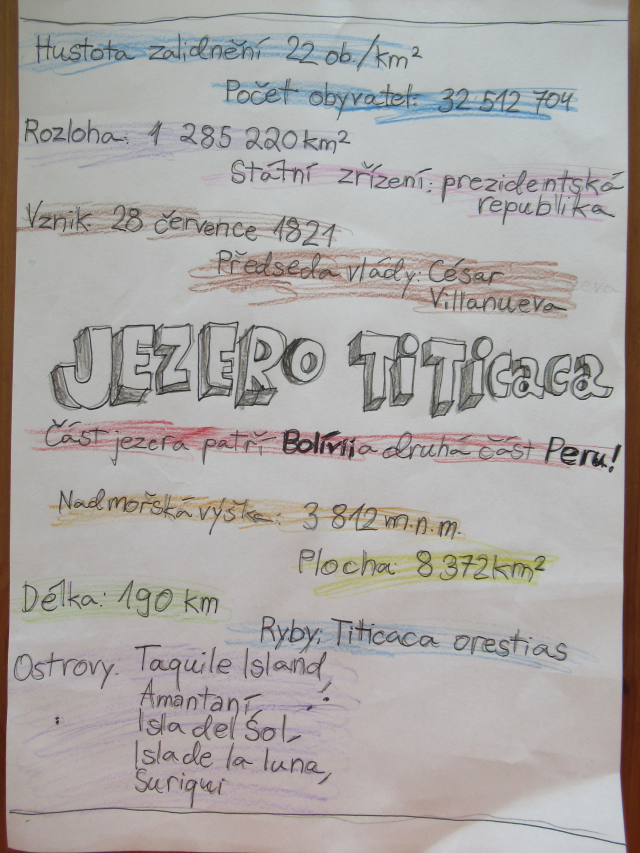 Hustota zalidnění 22 ob./km²
Počet obyvatel: 32 512 704
Rozloha: 1 285 220 km²
Státní zřízení: prezidentská
republika
Vznik 28 července 1821
Předseda vlády: César
Villanueva
JEZERO TiTicaca
Část jezera patří Bolívii a druhá část Peru!
Nadmořská výška: 3 812 m.n.m.
Plocha: 8 372 km²
Délka: 190 km
Ryby: Titicaca orestias
Ostrovy: Taquile Island,
Amantaní,
Isla del Sol,
Isla de la luna,
Suriqui